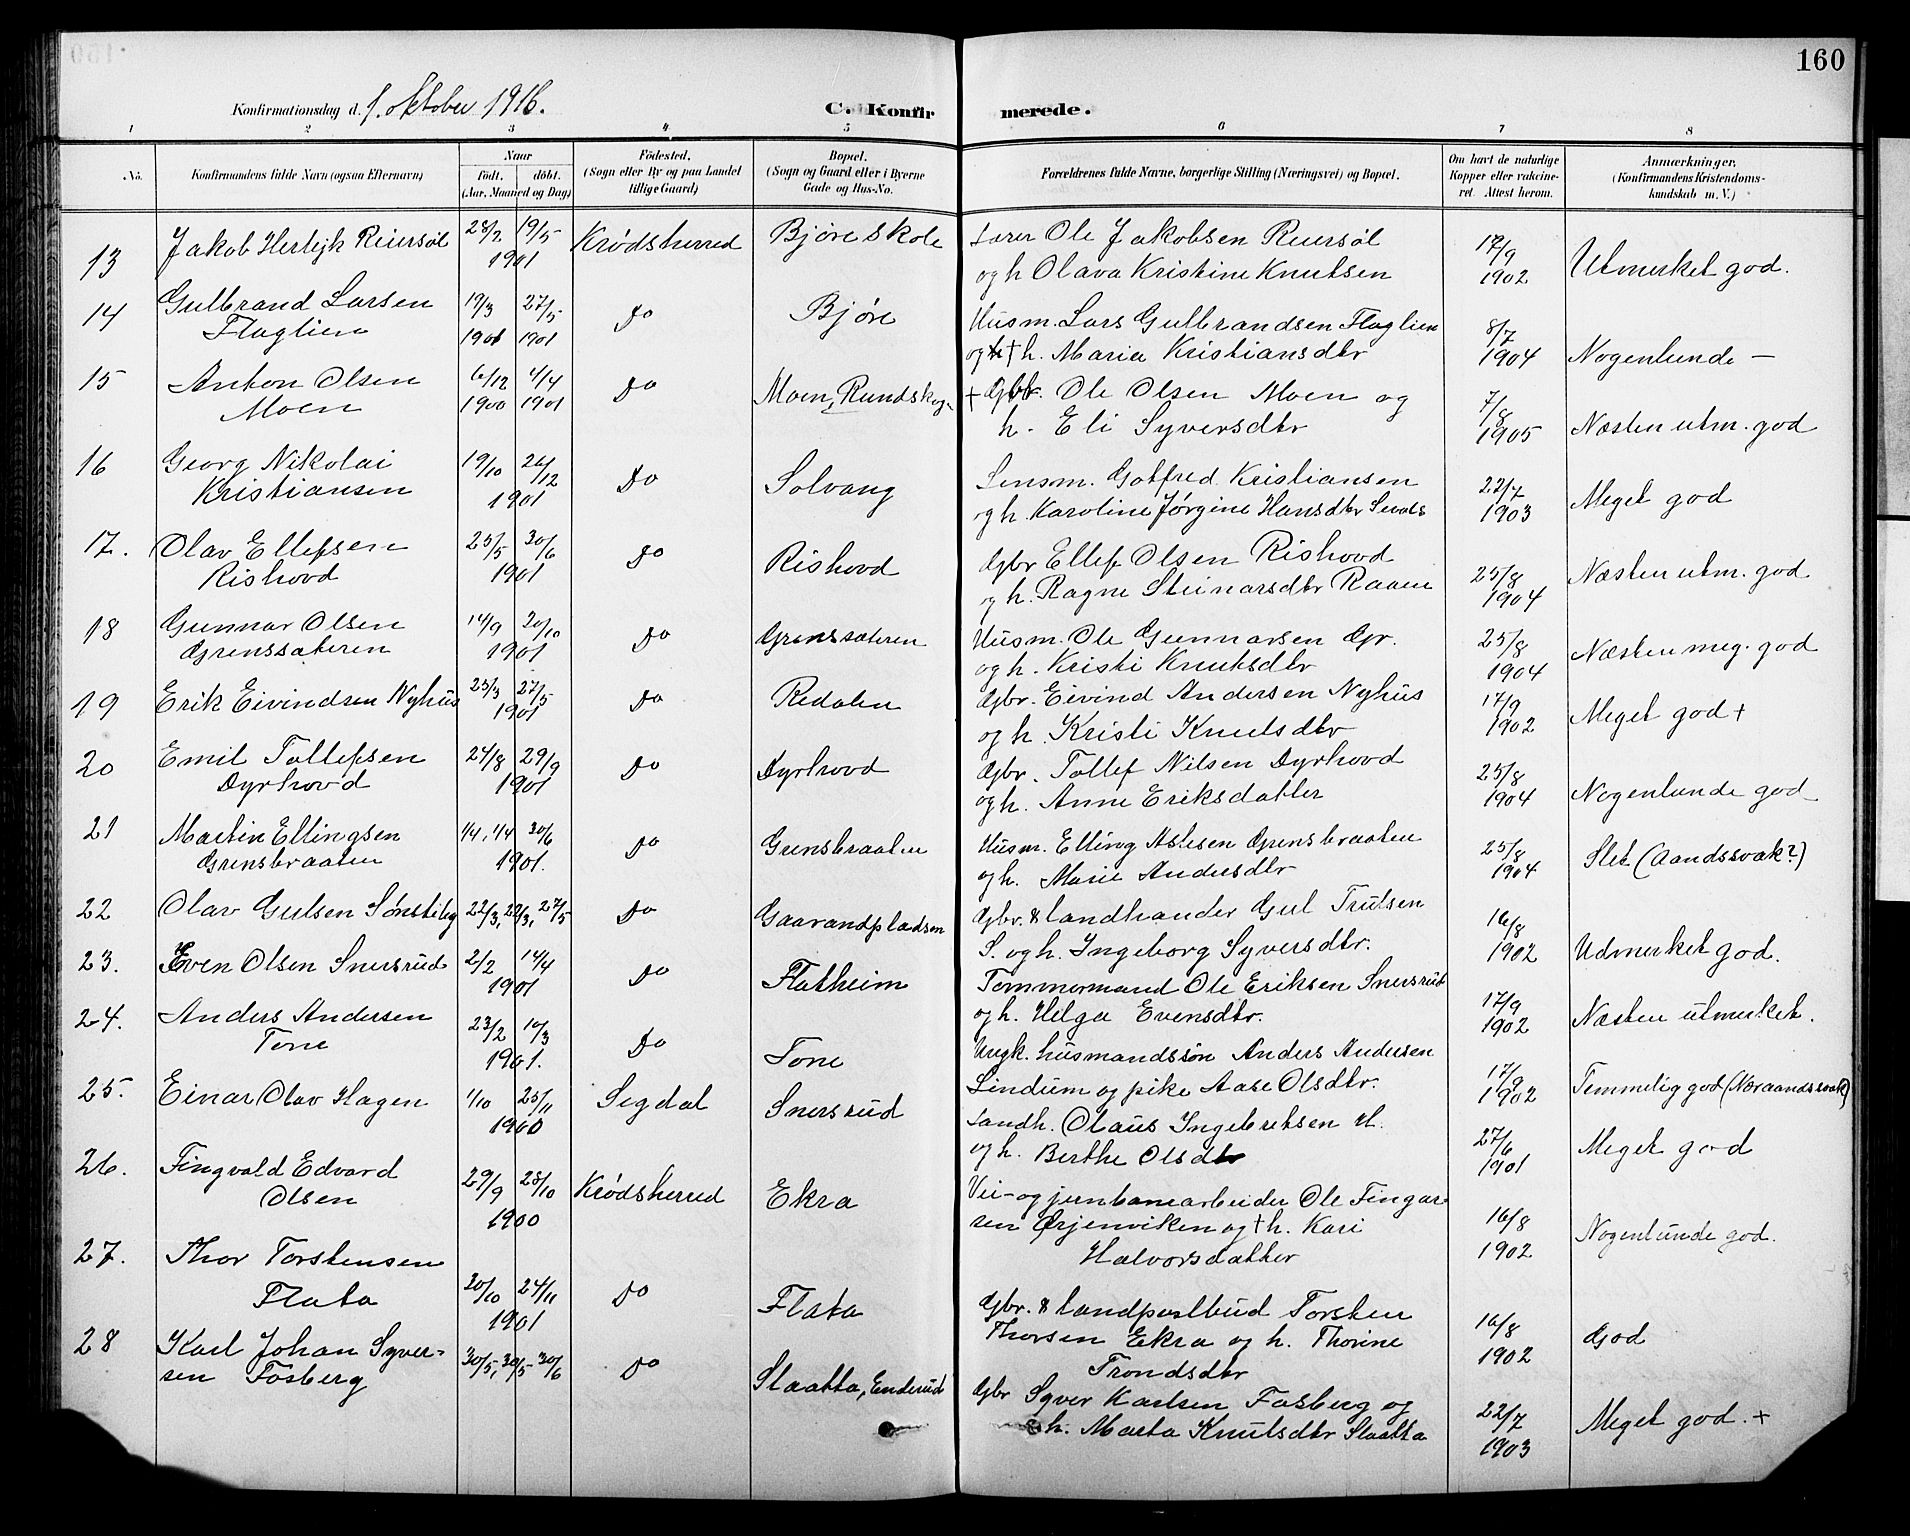 160
Konfirmationsdag d. 1. oktober 1916. C. Konfirmerede.
1 2 3 4 5 6 7 8
No. Konfirmandens fulde Navn (ogsaa Efternavn) Naar födt. döbt. (Aar, Maaned og Dag) Födested, (Sogn eller By og paa Landet tillige Gaard) Bopæl. (Sogn og Gaard eller i Byerne Gade og Hus-No. Forældrenes fulde Navne, borgerlige Stilling (Næringsvei) og Bopæl. Om havt de naturlige Kopper eller vaccineret. Attest herom. Anmærkninger, (Konfirmandens Kristendomskundskab m. V.)
13 Jakob Herlejk Reiersøl 28/2 19/5 1901 Krødsherred Bjøre skole Lærer Ole Jakobsen Reiersøl 17/9
og h. Olava Kristine Knutsen 1902 Utmerket god.
14 Gulbrand Larsen 19/3 27/5 Do Bjøre Husm. Lars Gulbrandsen Flaglien 8/7
Flaglien 1901 1901 og † h. Maria Kristiansdtr 1904 Nogenlunde —
15 Anton Olsen 6/12 4/4 Do Moen, Rundskog. † Gbr. Ole Olsen Moen og 7/8
Moen 1900 1901 h. Eli Syversdtr 1905 Næsten utm. god
16 Georg Nikolai 19/10 26/12 Do Solvang Lensm. Gotfred Kristiansen 22/7
Kristiansen 1901 og h. Karoline Jørgine Hansdtr 1903 Meget god
17. Olav Ellefsen 25/5 30/6 Do Rishovd Gbr Ellef Olsen Rishovd 25/8
Rishovd 1901 og h. Ragne Steinarsdtr Raaen 1904 Næsten utm. god
18 Gunnar Olsen 14/9 20/10 Do Grenssæteren Husm. Ole Gunnarsen Gr. 25/8
Grenssæteren 1901 og h. Kristi Knutsdtr 1904 Næsten meg. god
19 Erik Eivindsen Nyhus 25/3 27/5 Do Redalen Gbr. Eivind Andersen Nyhus 17/9
1901 og h. Kristi Knutsdtr 1902 Meget god +
20 Emil Tollefsen 24/8 29/9 Do Dyrhovd Gbr. Tollef Nilsen Dyrhovd 25/8
Dyrhovd 1901 og h. Anne Eriksdatter 1904 Nogenlunde god
21 Martin Ellingsen 1/4, 1/4 30/6 Do Grensbraaten Husm. Elling Aslesen Grensbraaten 25/8
Grensbraaten 1901. og h. Marie Andersdtr 1904 Slet (Aandssvak?)
22 Olav Gulsen Sønstebg 22/3, 22/3, 27/5 Do Gaarandpladsen Gbr. & landhander Gul Trulsen 16/8
S. og h. Ingeborg Syversdtr. 1902 Udmerket god.
23. Even Olsen Snersrud 2/2 14/4 Do Flatheim Tømmermand Ole Eriksen Snersrud 17/9
1901 og h. Helga Evensdtr. 1902 Næsten utmerket.
24. Anders Andersen 23/2 10/3 Do Tone Ungk. husmandssøn Anders Andersen 17/9
Tone 1901. Lindum og pike Aase Olsdtr. 1902 Temmelig god (Nær aandssvak)
25. Einar Olav Hagen 1/10 25/11 Segdal Snersrud Landh. Olaus Ingebretsen H. 27/6
1900 og h. Berthe Olsdtr 1901 Meget god
26. Fingvald Edvard 29/9 28/10 Krødsherred Ekra Vei- og jernbanearbeider Ole Fingar- 16/8
Olsen 1900 sen Ørjenviken og † h. Kari 1902 Nogenlunde god.
Halvorsdatter
27. Thor Torstensen 20/10 24/11 Do Flata Gbr. & landpostbud Torsten 16/8
Flata 1901 Thorsen Ekra og h. Thorine 1902 God
Trondsdtr
28 Karl Johan Syver- 30/5, 30/5 30/6 Do Slaatta, Enderud Gbr Syver Karlsen Fosberg og 22/7
sen Fosberg h. Marta Knutsdtr Slaatta 1903 Meget god. +